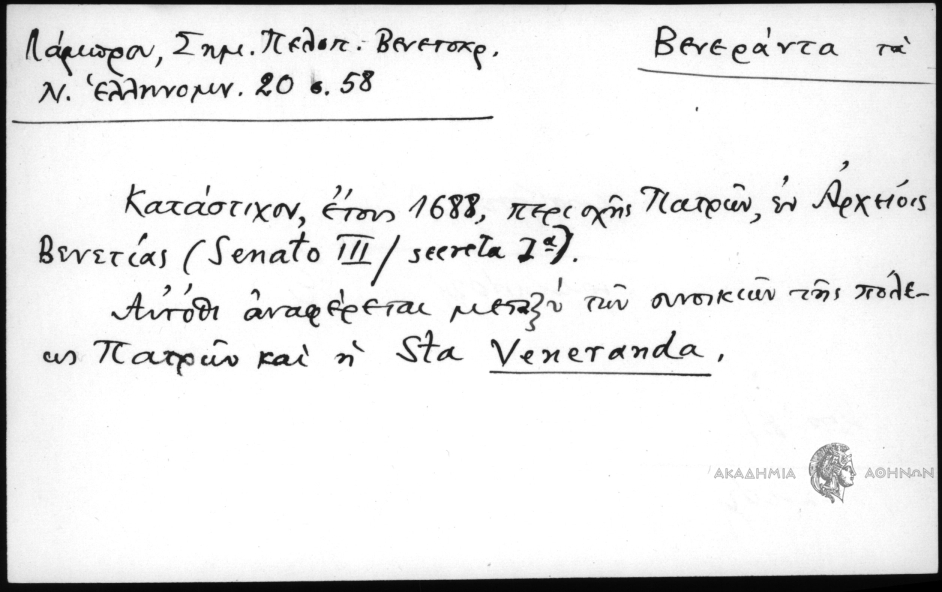 Λάμπρου, Σημ. Πελοπ. Βενετοκρ.
Ν. Ἑλληνομν. 20 σ. 58
Βενεράντα τὰ
Κατάστιχον, ἔτους 1688, περιοχῆς Πατρῶν, ἐν Ἀρχείοις
Βενετίας (Senato III / secreta Iª).
Αὐτόθι ἀναφέρεται μεταξὺ τῶν συνοικιῶν τῆς πόλε-
ως Πατρῶν καὶ ἡ Sta Veneranda.
ΑΚΑΔΗΜΙΑ ΑΘΗΝΩΝ